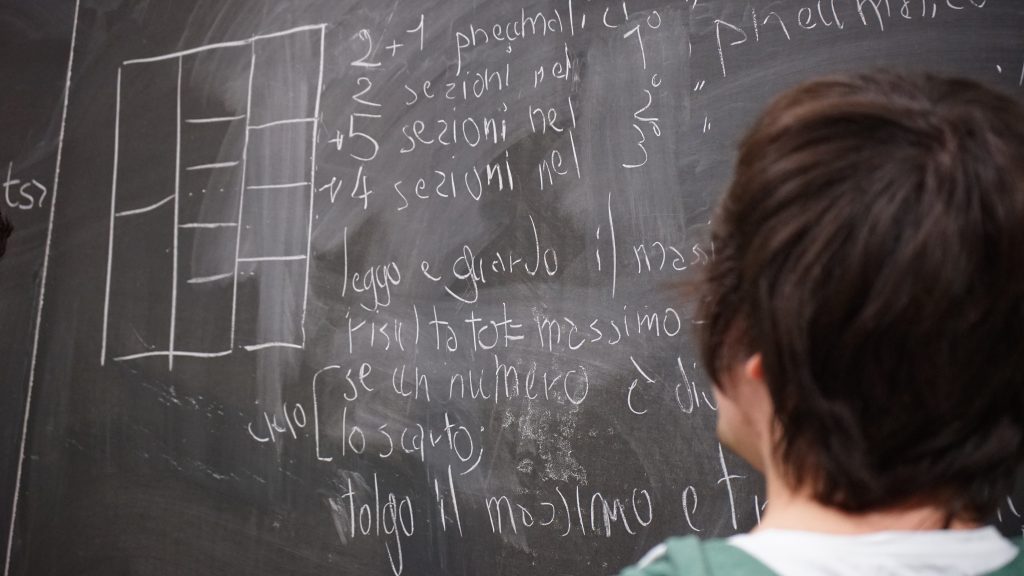 2+1 pneumatici 1° " pneumatico
2 sezioni nel
+5 sezioni nel 2° "
+4 sezioni nel 3° "
ts>
leggo e guardo il
massimo -
se un numero è
ciclo
lo scarto;
tolgo il massimo e